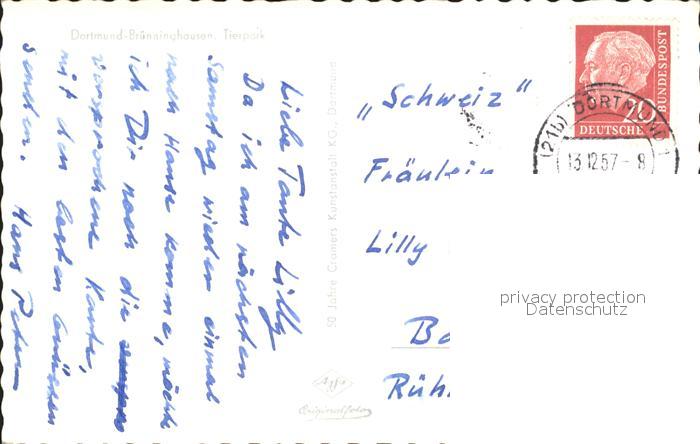 Dortmund-Brünninghausen. Tierpark
Liebe Tante Lilly
Da ich am nächsten
Samstag wieder einmal
nach Hause komme, möchte
ich Dir noch die
versprochene Karte,
mit den besten Grüssen
senden. Hans Peter
50 Jahre Cramers Kunstanstalt KG., Dortmund
Agfa
Originalfoto
"Schweiz"
Fräulein
Lilly
Ba
Rüh.
20
DEUTSCHE
BUNDESPOST
(21b) DORTMUND 1
13.12.57-8
privacy protection
Datenschutz